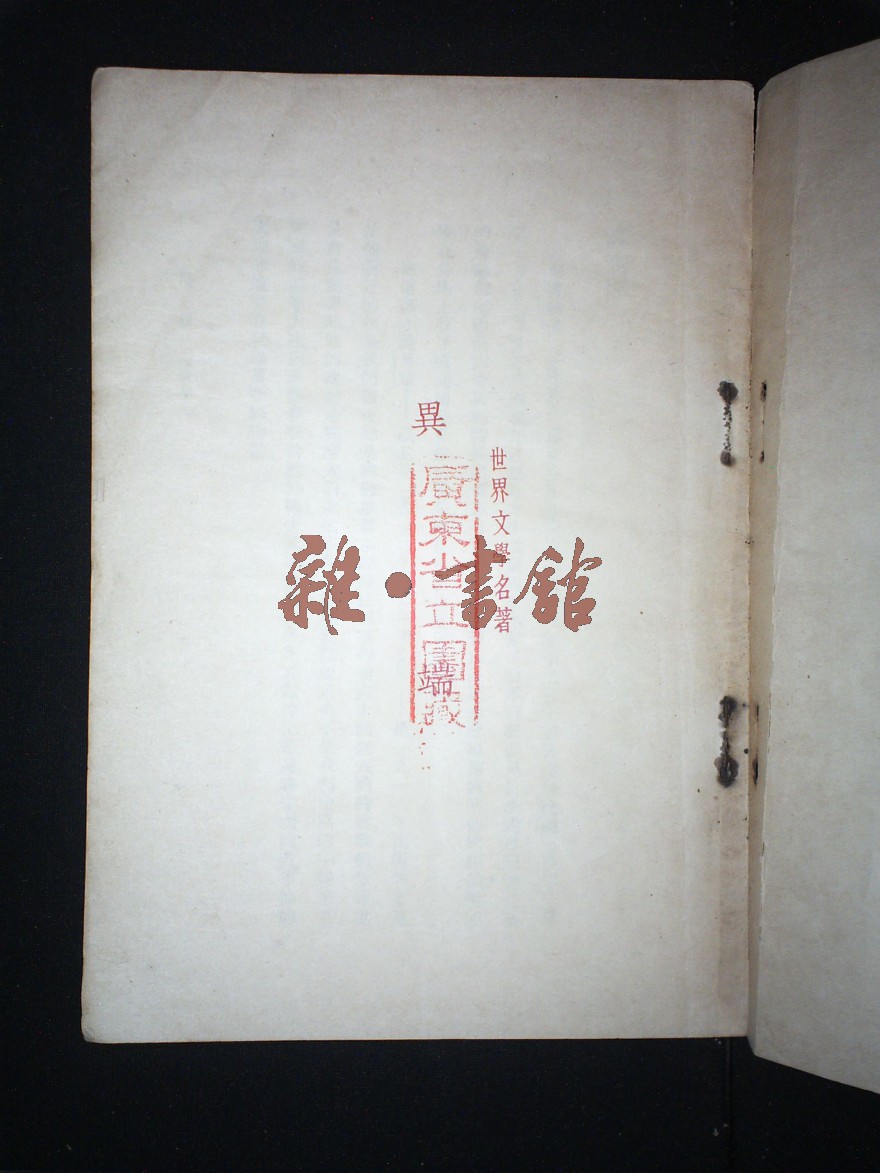 世界文學名著
異端
廣東省立圖藏
雜·書館